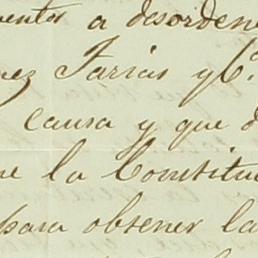 ventos a desordene
nez Farias y Ca.
causa y que d
ne la Constitu
para obsener la